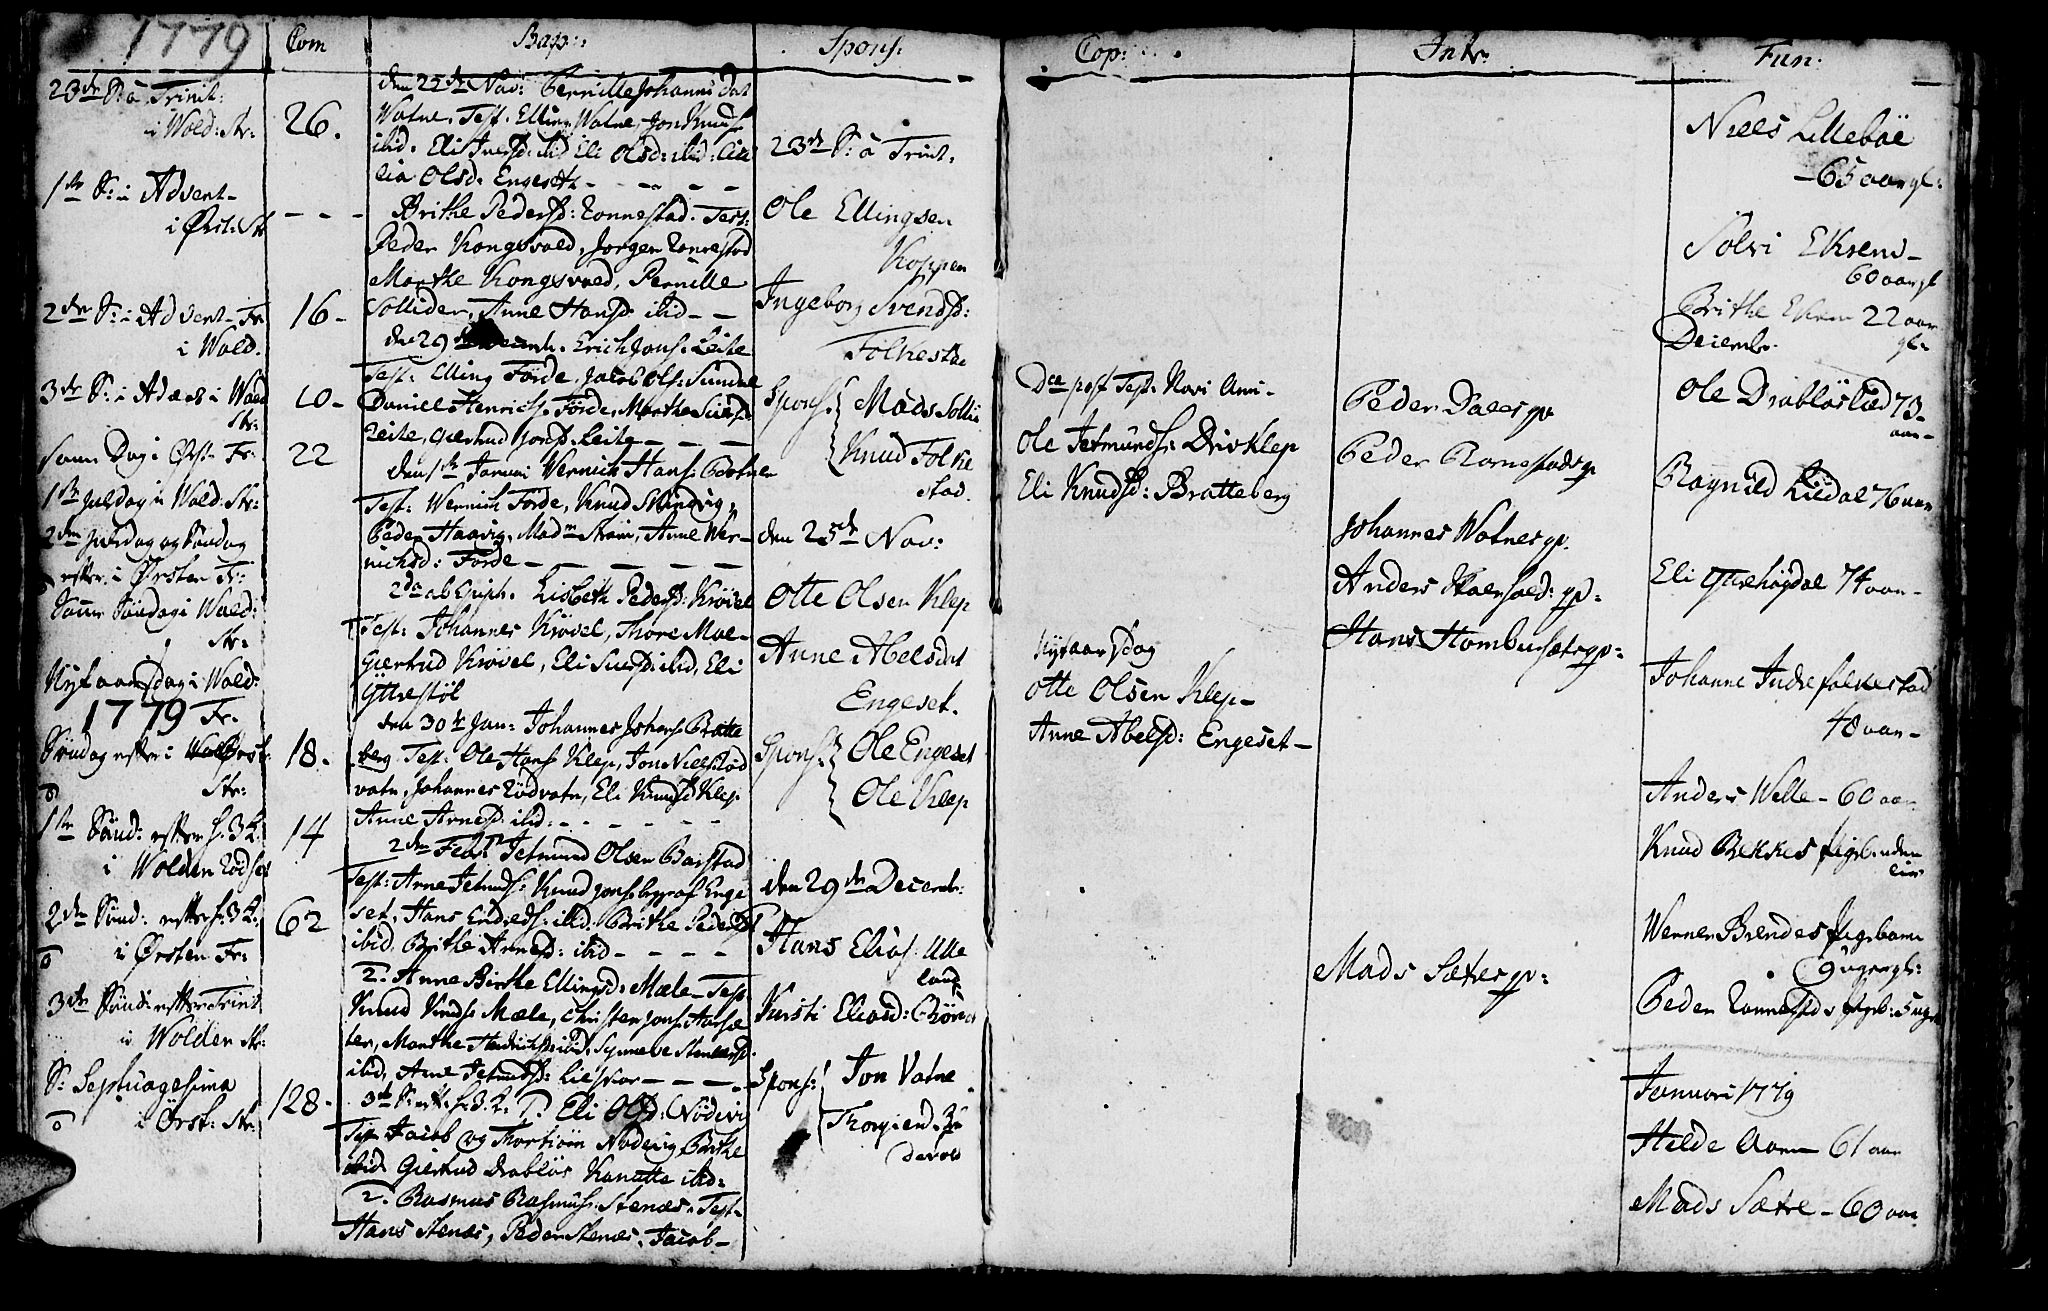 1779
Com
Bap:
Spons:
Cop:
Intr:
Fun:
23de S: a Trinit:
i Wold: Str:
1te S: i Advent-
i Ørst: Str
2den S: i Advent- Fr
i Wold.
3de S: i Advent i Wold
Str:
Samme Dag i Ørst: Fr:
1te Juledag i Wold: Str:
2den Juledag og Søndag
efter i Ørsten Fr:
Samme Søndag i Wold:
Str:
Nytaarsdag i Wold:
1779 Fr.
Søndag efter i Ørst:
Str:
1te Sønd: efter h: 3 K:
i Wolden
2den Sønd: efter h: 3 K:
i Ørsten Fr:
3de Sønd: efter Trinit
i Wolden Str:
S: Septuagesima
i Ørst: Str:
26.
- - -
16-
10-
22
18.
14
62
128-
den 25de Nov: Pernille Johannisdat
Watne, Test. Elling Watne, Jon Knuds:
ibid. Eli Iversd: ibid Eli Olsd: ibid: Cici
lia Olsd. Engeset - - - -
Brithe Pedersd: Tonnestad. Test:
Peder Kongsvold, Jorgen Tonnestad
Marthe Kongsvold, Pernille
Sollider, Anne Hansd: ibid - -
den 29de Decemb. Erich Jons: Leite
Test: Elling Förde, Jacob Ols: Sundal
Daniel Henrichs: Förde, Marthe Siursd
Leite, Giertrud Jonsd: Leite - - -
den 1te Januari Wernich Hans:
Test: Wernich Förde, Knud
Peder Haavig, Madm Strøm, Anne Wer-
nichsd: Förde - - - - -
2da ab Epiph. Lisbeth Pedersd: Krøvel
Test: Johannes Krövel, Thore Mæle-
Giertrud Krövel, Eli Siursd: ibid, Eli
Yttrestøl
den 30te Jan: Johannes Johans: Bratte
berg Test: Ole Hans: Klep, Jon Niels: Rød
vatn, Johannes Rödvatn, Eli Knudsd Klep
Anne Arnesd: ibid: - - - - -
2den Feb: Jetmund Olsen Barstad
Test: Arne Jetmds: Knud Jons: Enge
set, Hans Endreds: ibid. Brithe Pedersd
ibid Brithe Arnesd: ibid - - - -
T. Anne Birthe Ellingsd: Mæle- Test
Knud Knuds: Mæle, Christen Jons: Aarsæ
ter, Marthe Hendrichsd: ibid, Synneve Steenersd
ibid, Anne Jetmdsd: Lieskar - - - -
3de S: eft: h: 3 K: T. Eli Olsd: Nödevig
Test: Jacob og Thorbiörn Nödevig Brithe
ibid Giertrud Drabløs Kanutta ibid:
T. Rasmus Rasmus: Stenæs, Test-
Hans Stenæs, Peder Stenæs, Jacob-
23de S: a Trint.
Ole Ellingsen
Koppen
Ingeborg Svendsd:
Folkestad
Spons: Mads Sollie
Knud Folke
stad.
den 25de Nov:
Otte Olsen Klep
Anne Abelsdat
Engeset.
Spons: Ole Engeset
Ole Klep
den 29de Decemb:
Hans Elias: Ulle
land
Kirsti Eliasd:
Spons: Jon Vatne
Dca post Fest: Novi Anni-
Ole Jetmunds: Driv Klep
Eli Knudsd: Bratteberg
Nytaarsdag
Otte Olsen Klep-
Anne Abelsd: Engeset-
Peder Dales gv
Peder Romestads gv
Johannes Watnes gv.
Anders gv:
Hans Hambersæters gv:
Mads Sæters gv:
Niels Lillebøe
-65 aar gl:
Solvi Eksend-
60 aar gl
Brithe Eksen 22 aar
gl-
Decemb.
Ole Drabløs Lid 73-
aar-
Ragnild Lidal 76 aar
Eli Yttrehogdal 74 aar-
Johanne Indrefolkestad
48 aar-
Anders Welle- 60 aar
Knud Bekkes Pigeb: uden
liv
Werner Brendes Pigebarn
9 uger gl:
Peder Tonnestads pigeb: 5 uger
Januari 1779
Helde Aam- 61 aar
Mads Sætre- 60 aar